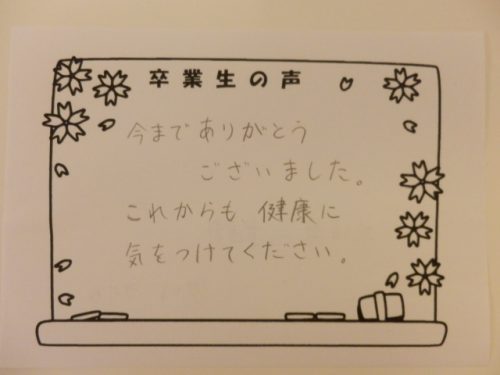 卒業生の声
今までありがとう
ございました。
これからも、健康に
気をつけてください。